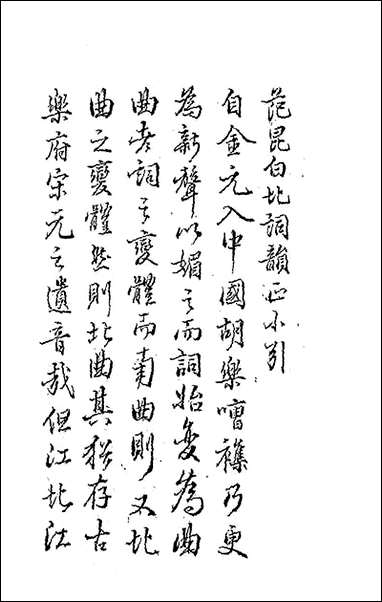 范昆白北詞韻正小引
自金元入中國胡樂嘈襍乃更
為新聲以媚之而詞始變為曲
曲者詞之變體而南曲則又北
曲之變體然則北曲其猶存古
樂府宋元之遺音哉但江北法